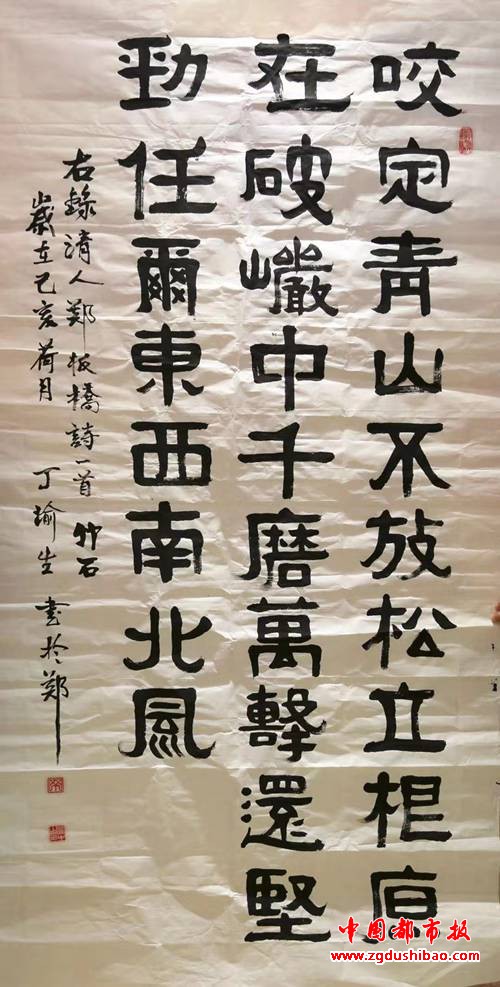 咬定青山不放松立根原
在破巗中千磨萬擊還堅
勁任爾東西南北風
右錄清人鄭板橋詩一首 竹石
歲在己亥荷月 丁瑜生 書於鄭
中国都市报
www.zgdushibao.com